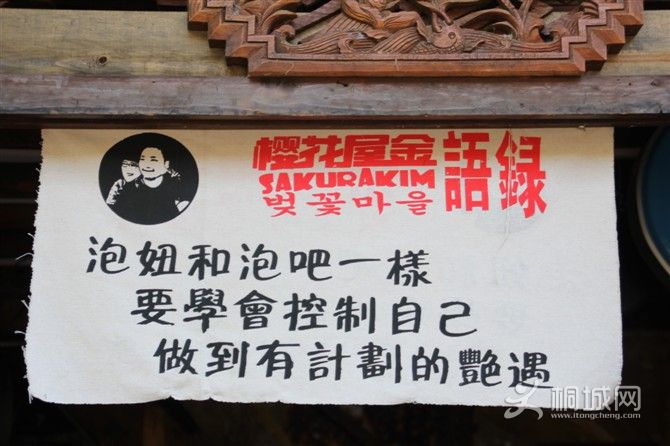 樱花屋金 語録
SAKURAKIM
벚꽃마을
泡妞和泡吧一樣
要學會控制自己
做到有計劃的艷遇
桐城网
www.itongcheng.com